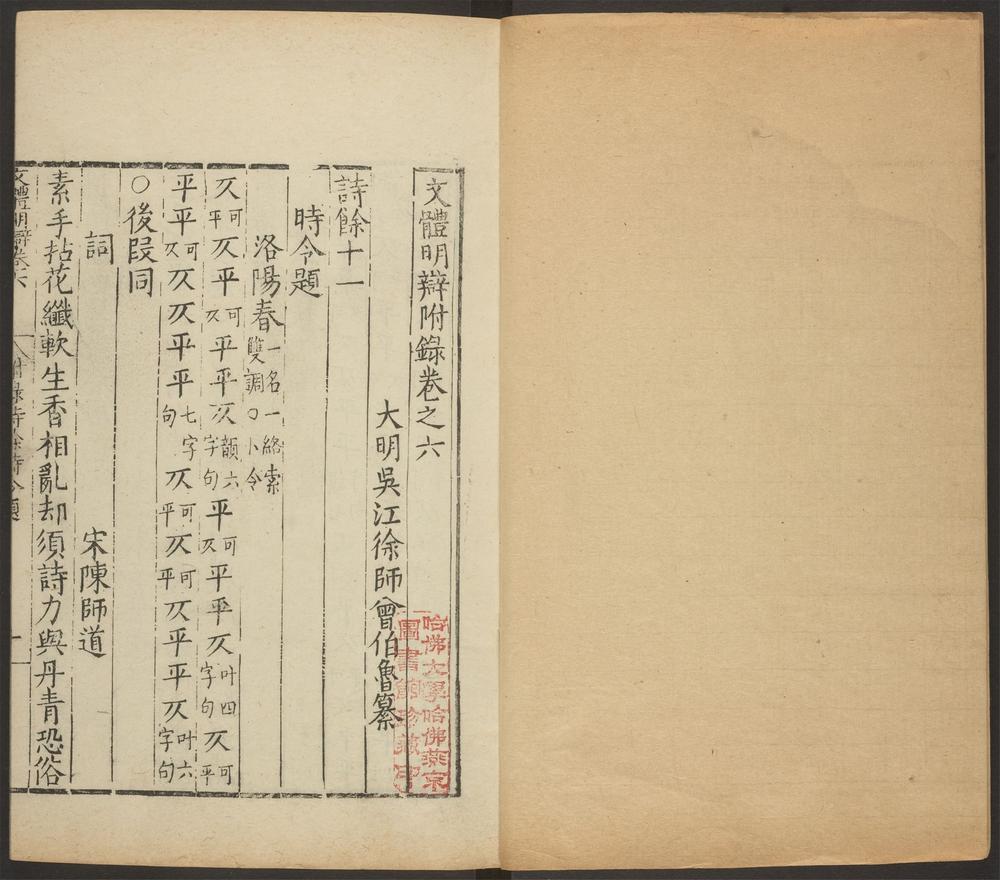 文體明辯附錄卷之六
大明吳江徐師曾伯魯纂
哈佛大學哈佛燕京
圖書館珍藏印
詩餘十一
時令題
洛陽春一名一絡索雙調○小令
仄可平仄平可仄平平仄韻六字句平可仄平平仄叶四字句仄可平
平平可仄仄仄平平七字句仄可平仄可平仄平平仄叶六字句
○後段同
詞 宋陳師道
素手拈花纖軟生香相亂却須詩力與丹青恐俗
文體明辯卷六 附錄詩餘時令題 一